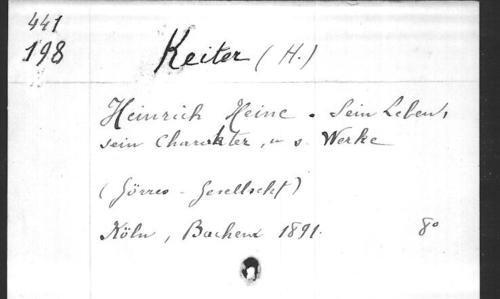 441
198
Keiter (H.)
Heinrich Heine. Sein Leben,
sein Charakter, u s Werke
(Görres-Gesellschft)
Köln, Bachem 1891. 8°